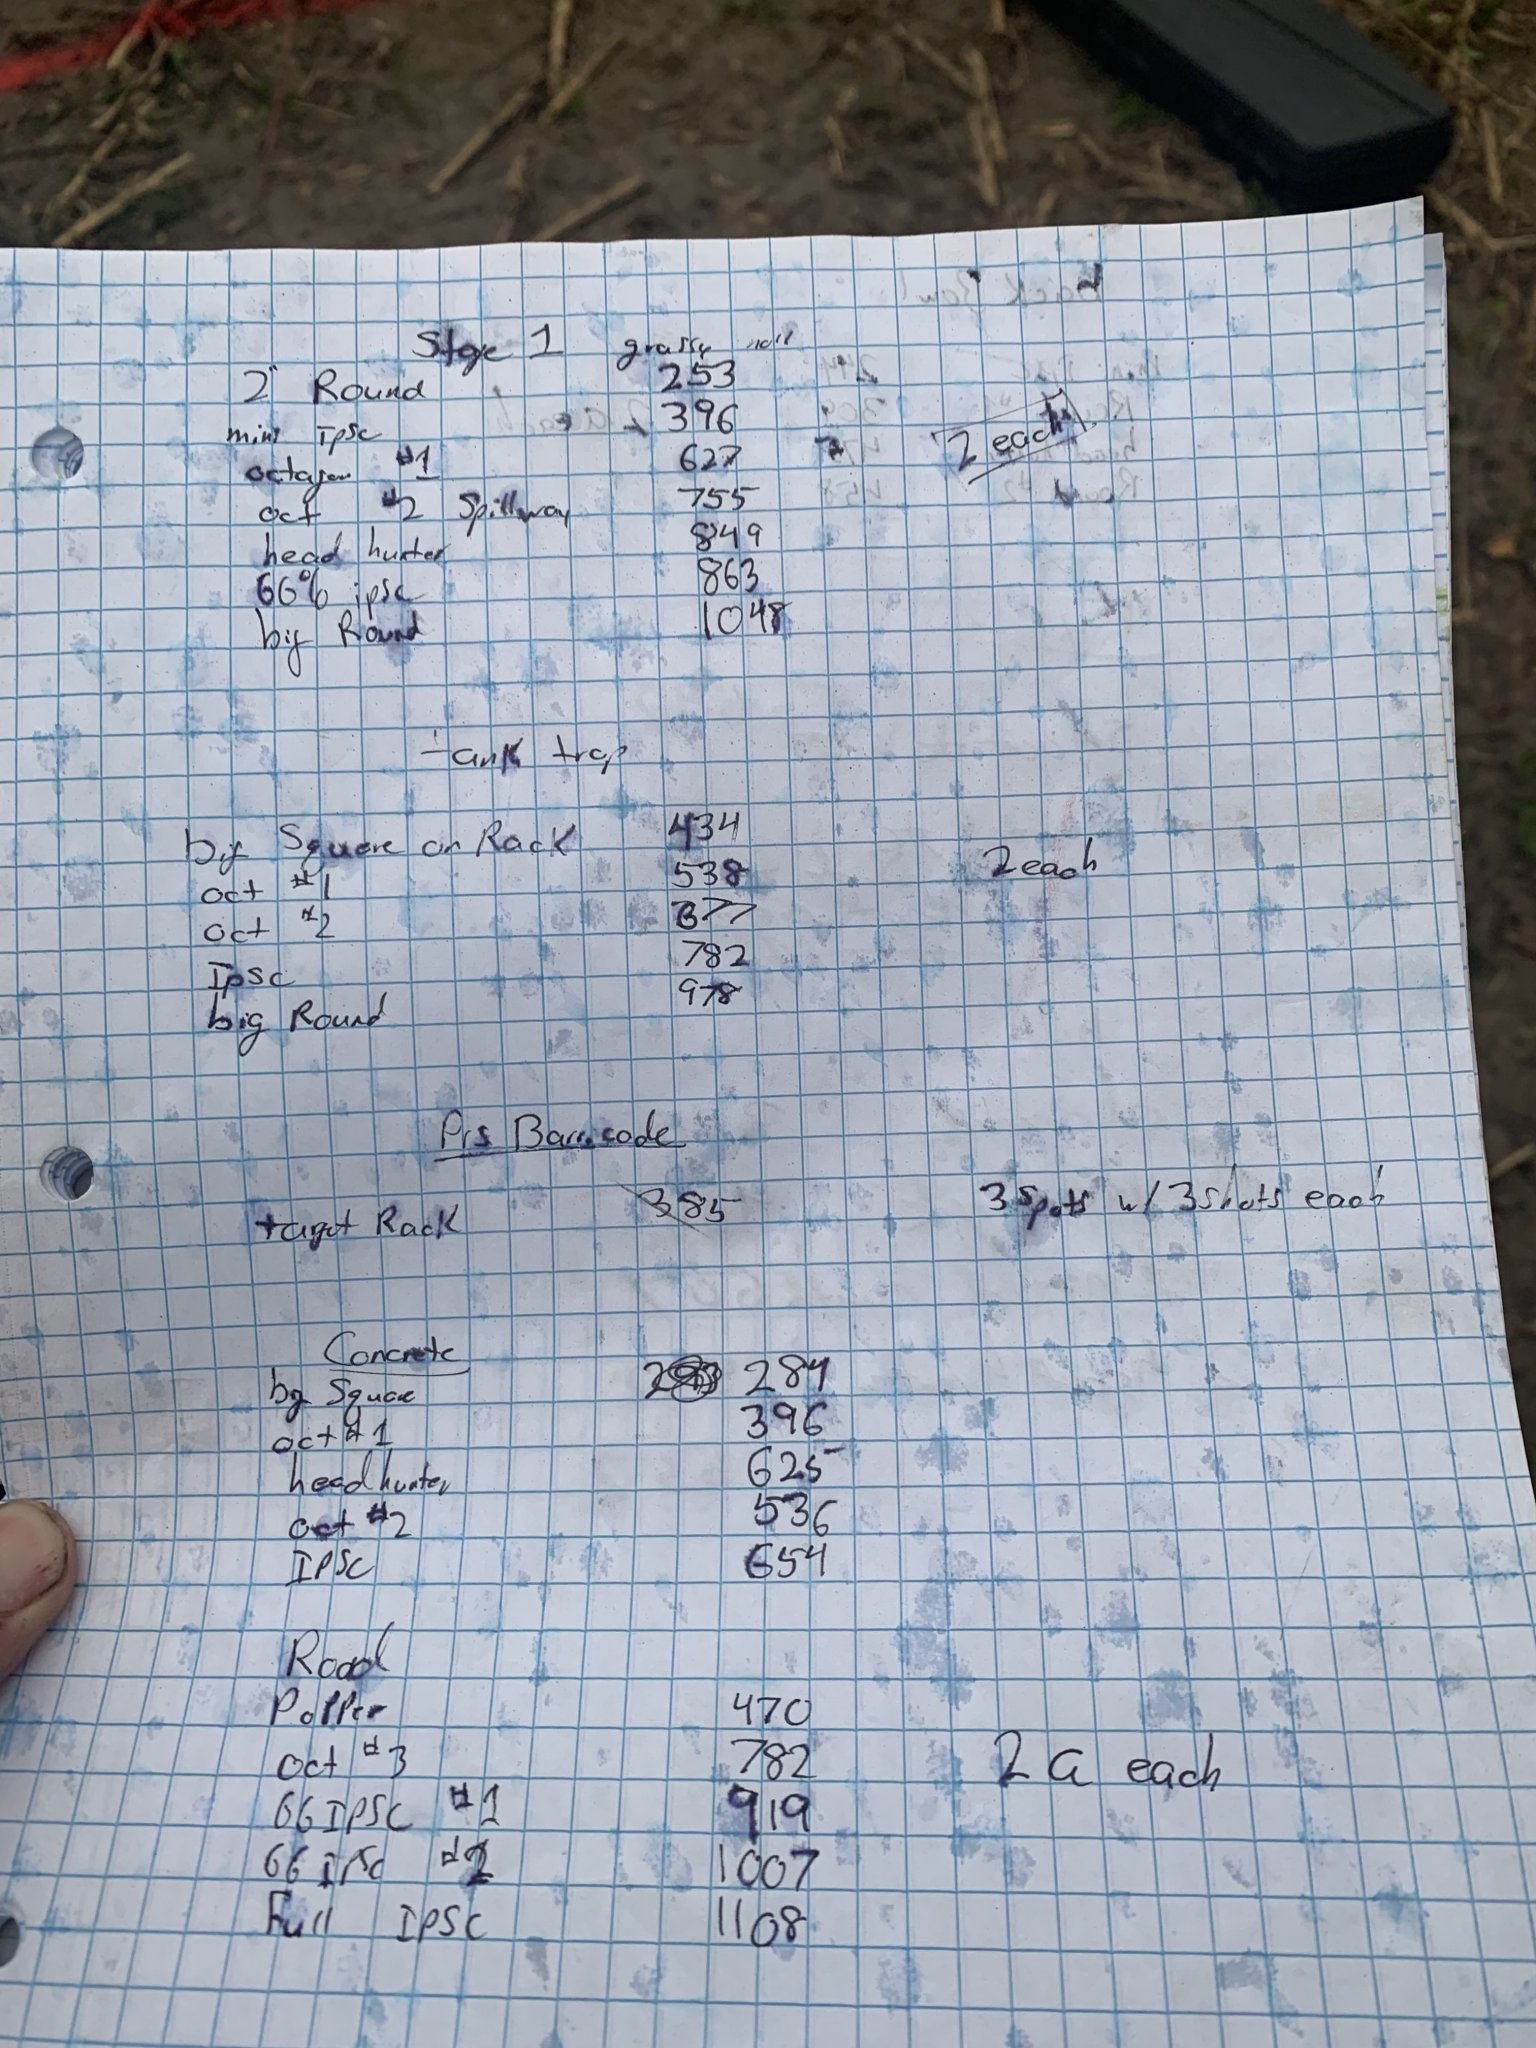 Stage 1 grassy
2" Round 253
mini Ipsc 396
octagon #1 627
oct #2 Spillway 755
2 each
head hunter 849
66% ipsc 863
big Round 1048
tank trap
big Square on Rack 434
oct #1 538
2 each
oct #2 677
Ipsc 782
big Round 978
Prs Barricade
target Rack 385 3 Spots w/ 3 shots each
Concrete
big Square 284
oct #1 396
head hunter 625
oct #2 536
IPSC 654
Road
Popper 470
oct #3 782 2 a each
66 IPSC #1 919
66 IPSC #2 1007
Full IPSC 1108